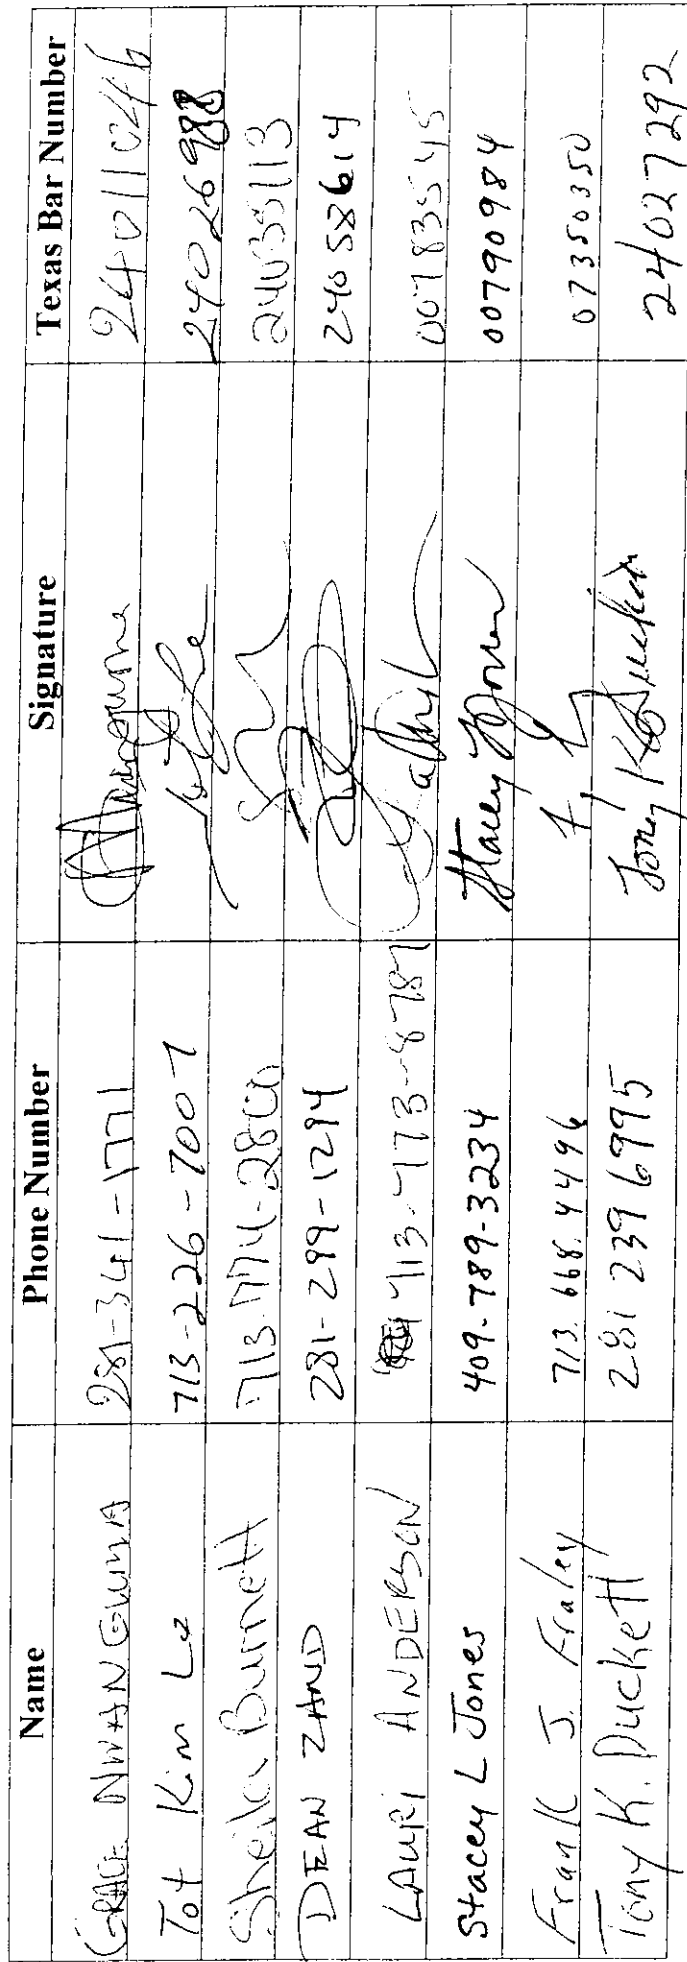 Name Phone Number Signature Texas Bar Number
GRACE NWANGWMA 281-341-1771 24011046
Tot Kim Le 713-226-7007 24026988
Sheila Burnett 713-774-2800 24035113
DEAN ZAND 281-299-1294 24058614
LAURI ANDERSON 713-773-8787 00783545
Stacey L Jones 409-789-3234 Stacey Jones 00790984
Frank J. Fraley 713.668.4496 07350350
Tony K. Duckett 281 239 6995 Tony K Duckett 24027292